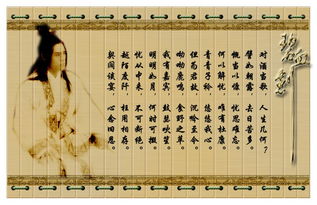 对酒当歌,人生几何?
譬如朝露,去日苦多。
慨当以慷,忧思难忘。
何以解忧,唯有杜康。
青青子衿,悠悠我心。
但为君故,沉吟至今。
呦呦鹿鸣,食野之苹。
我有嘉宾,鼓瑟吹笙。
明明如月,何时可掇?
忧从中来,不可断绝。
越陌度阡,枉用相存。
契阔谈宴,心念旧恩。